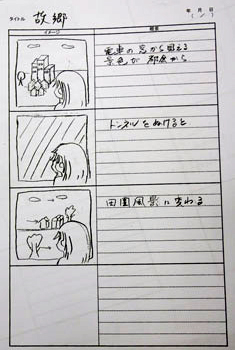 タイトル 故郷
年 月 日
( / )
イメージ
概要
電車の窓から見える
景色が 都会から
トンネルをぬけると
田園風景に変わる